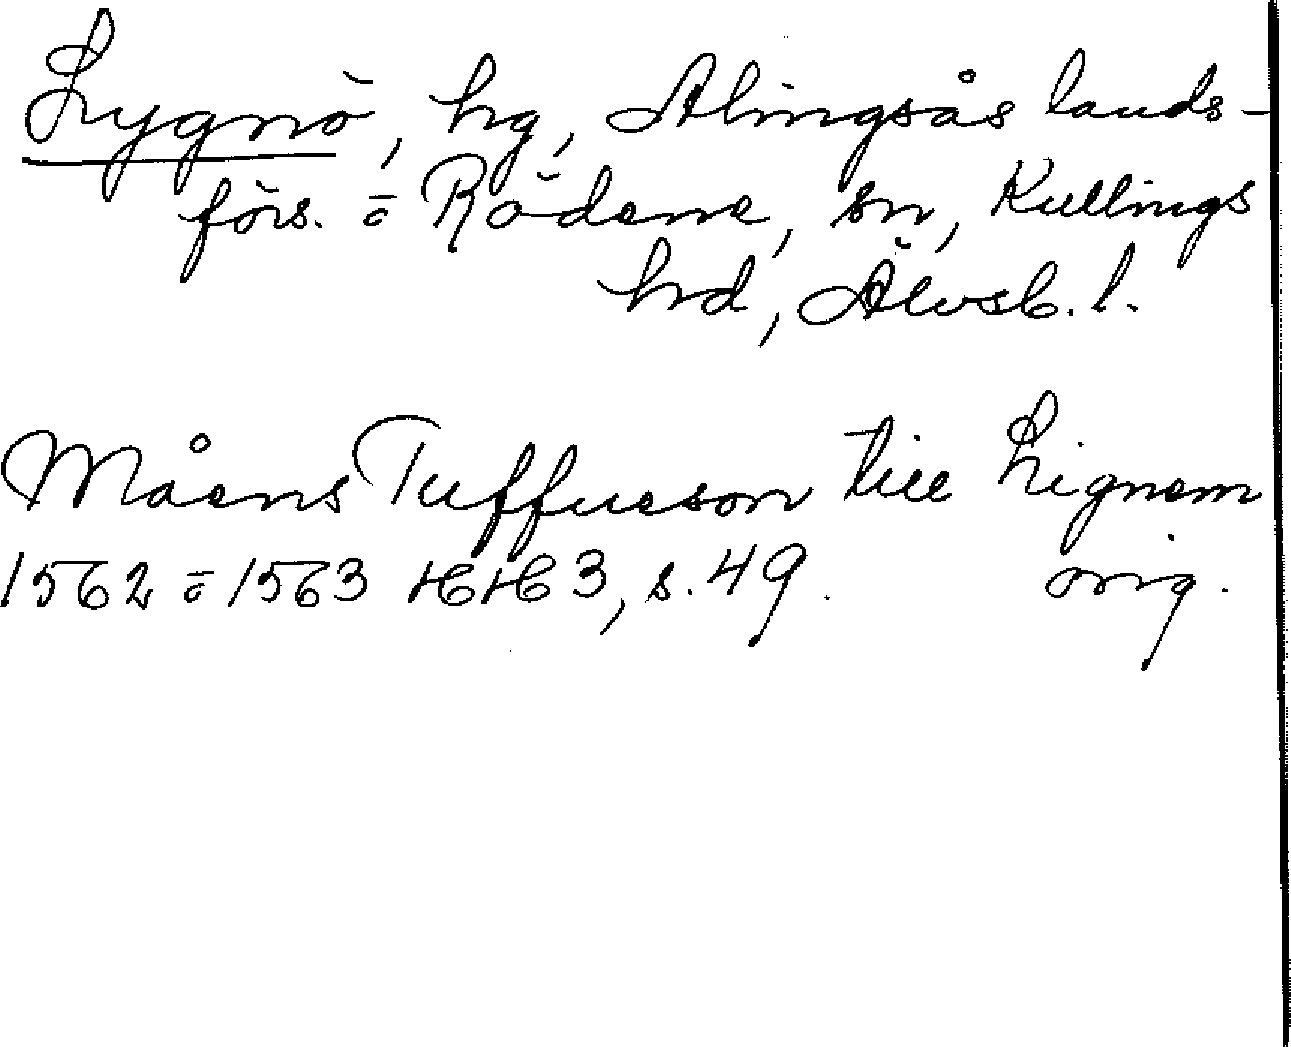 Lygnö, hg, Alingsås lands-
förs. o Rödene, sn, Kullings
hrd, Älvsb. l.
Måens Tuffueson till Lignem
1562 o 1563 HH 3, s. 49. orig.